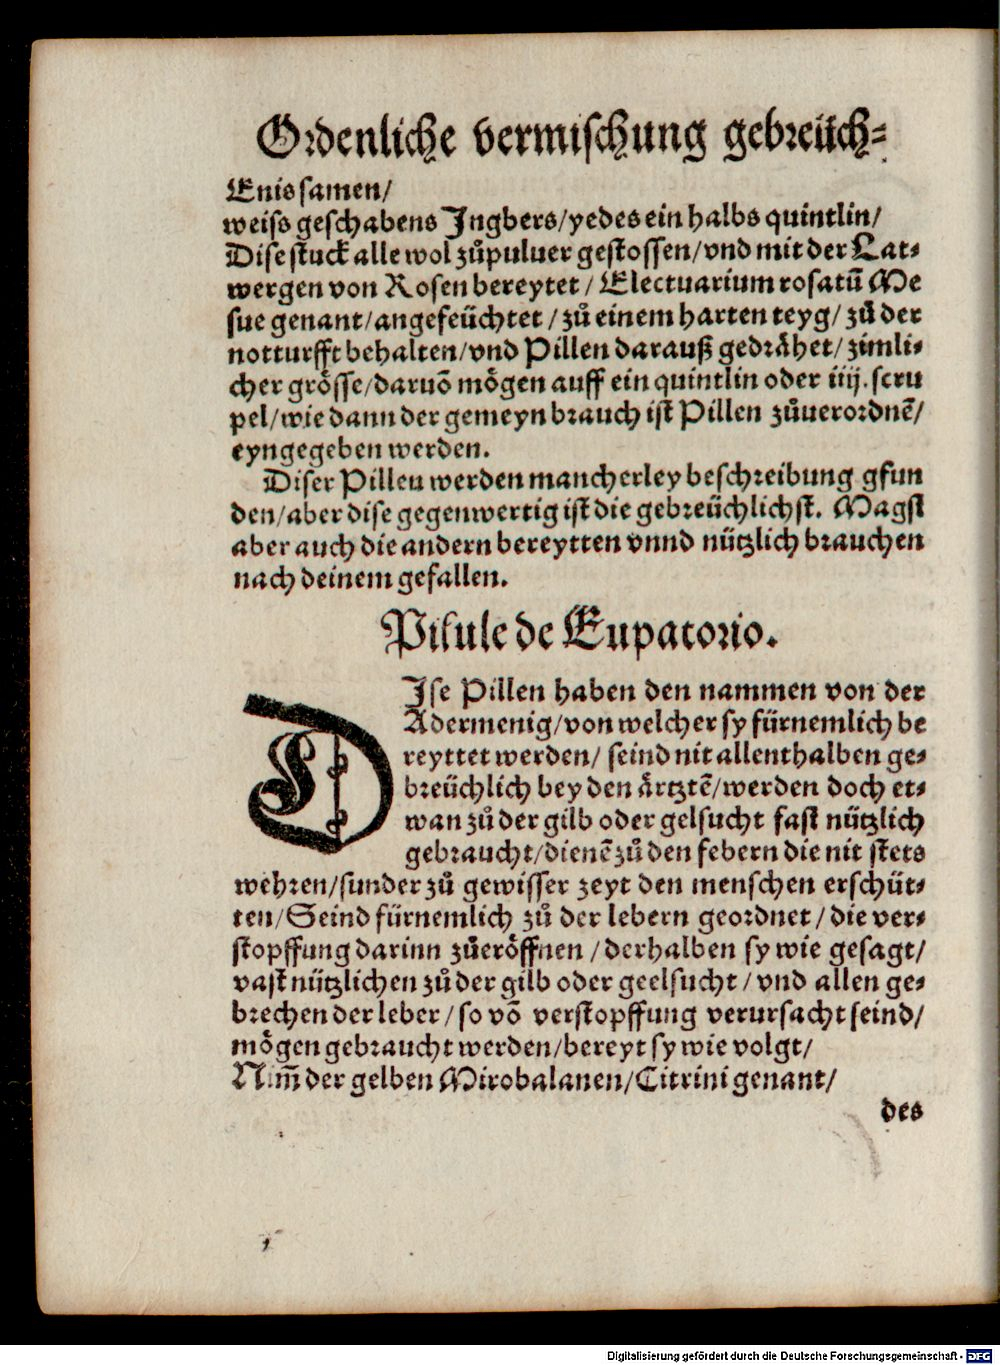 Ordenliche vermischung gebreüch-
Enis samen/
weiss geschabens Ingbers/yedes ein halbs quintlin/
Dise stuck alle wol zůpuluer gestossen/vnd mit der Lat-
wergen von Rosen bereytet/ Electuarium rosatũ Me
sue genant/angefeüchtet/zů einem harten teyg/zů der
notturfft behalten/vnd Pillen darauß gedrähet/zimli-
cher grösse/daruõ mögen auff ein quintlin oder iiij.scru
pel/wie dann der gemeyn brauch ist Pillen zůuerordnẽ/
eyngegeben werden.
Diser Pillen werden mancherley beschreibung gfun
den/aber dise gegenwertig ist die gebreüchlichst. Magst
aber auch die andern bereytten vnnd nützlich brauchen
nach deinem gefallen.
Pilule de Eupatorio.
DIse Pillen haben den nammen von der
Adermenig/von welcher sy fürnemlich be
reyttet werden/ seind nit allenthalben ge-
breüchlich bey den ärtztẽ/werden doch et-
wan zů der gilb oder gelsucht fast nützlich
gebraucht/dienẽ zů den febern die nit stets
wehren/sunder zů gewisser zeyt den menschen erschüt-
ten/Seind fürnemlich zů der lebern geordnet/die ver-
stopffung darinn zůeröffnen/derhalben sy wie gesagt/
vast nützlichen zů der gilb oder geelsucht/vnd allen ge-
brechen der leber/so võ verstopffung verursacht seind/
mögen gebraucht werden/bereyt sy wie volgt/
Nim̃ der gelben Mirobalanen/Citrini genant/
des
Digitalisierung gefördert durch die Deutsche Forschungsgemeinschaft - DFG